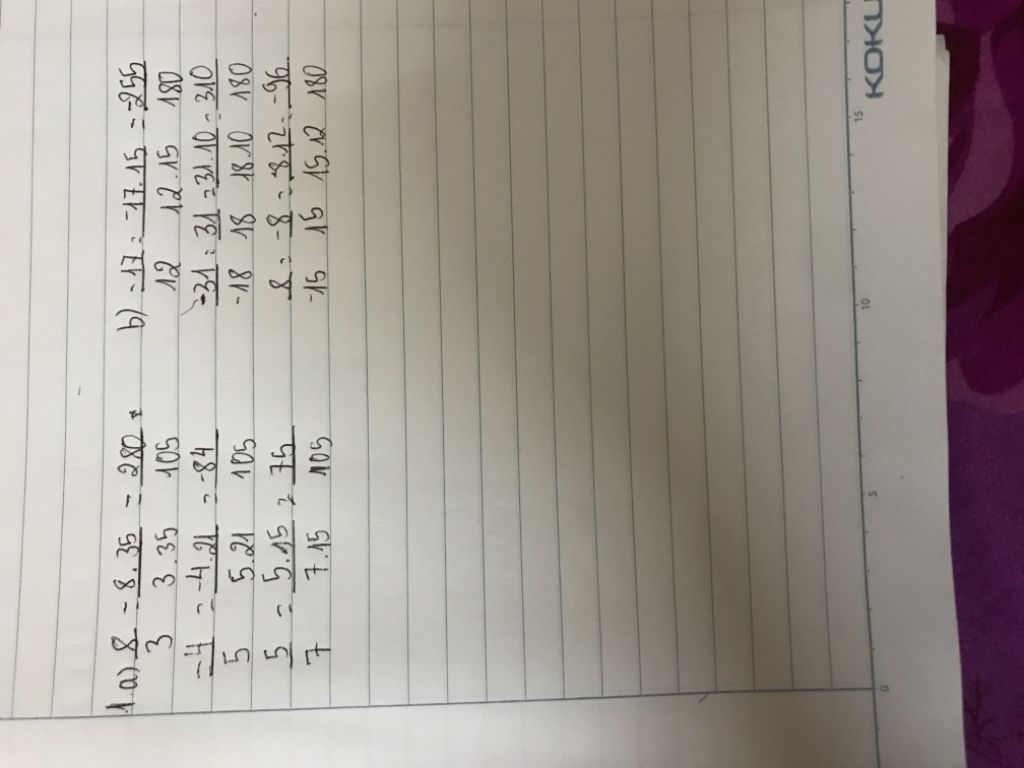 1 a) 8/3 = 8.35/3.35 = 280/105
-4/5 = -4.21/5.21 = -84/105
5/7 = 5.15/7.15 = 75/105
b) -17/12 = -17.15/12.15 = -255/180
-31/-18 = 31/18 = 31.10/18.10 = 310/180
8/-15 = -8/15 = -8.12/15.12 = -96/180
0 5 10 15
KOKU